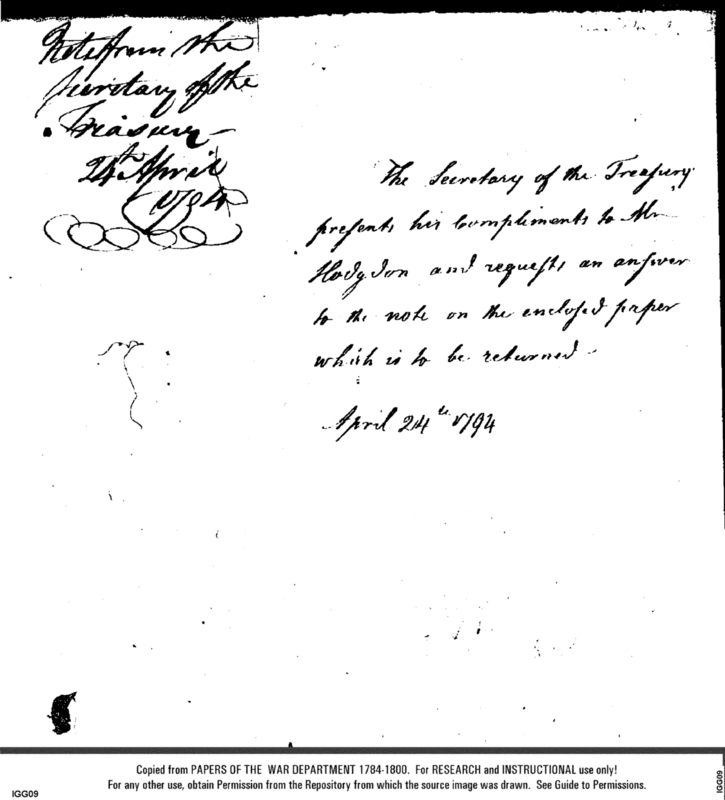 Note from the
Secretary of the
Treasury —
24th April
1794
The Secretary of the Treasury
presents his Compliments to Mr
Hodgdon and requests an answer
to the note on the enclosed paper
which is to be returned —
April 24th 1794
Copied from PAPERS OF THE WAR DEPARTMENT 1784-1800. For RESEARCH and INSTRUCTIONAL use only!
For any other use, obtain Permission from the Repository from which the source image was drawn. See Guide to Permissions.
IGG09
IGG09